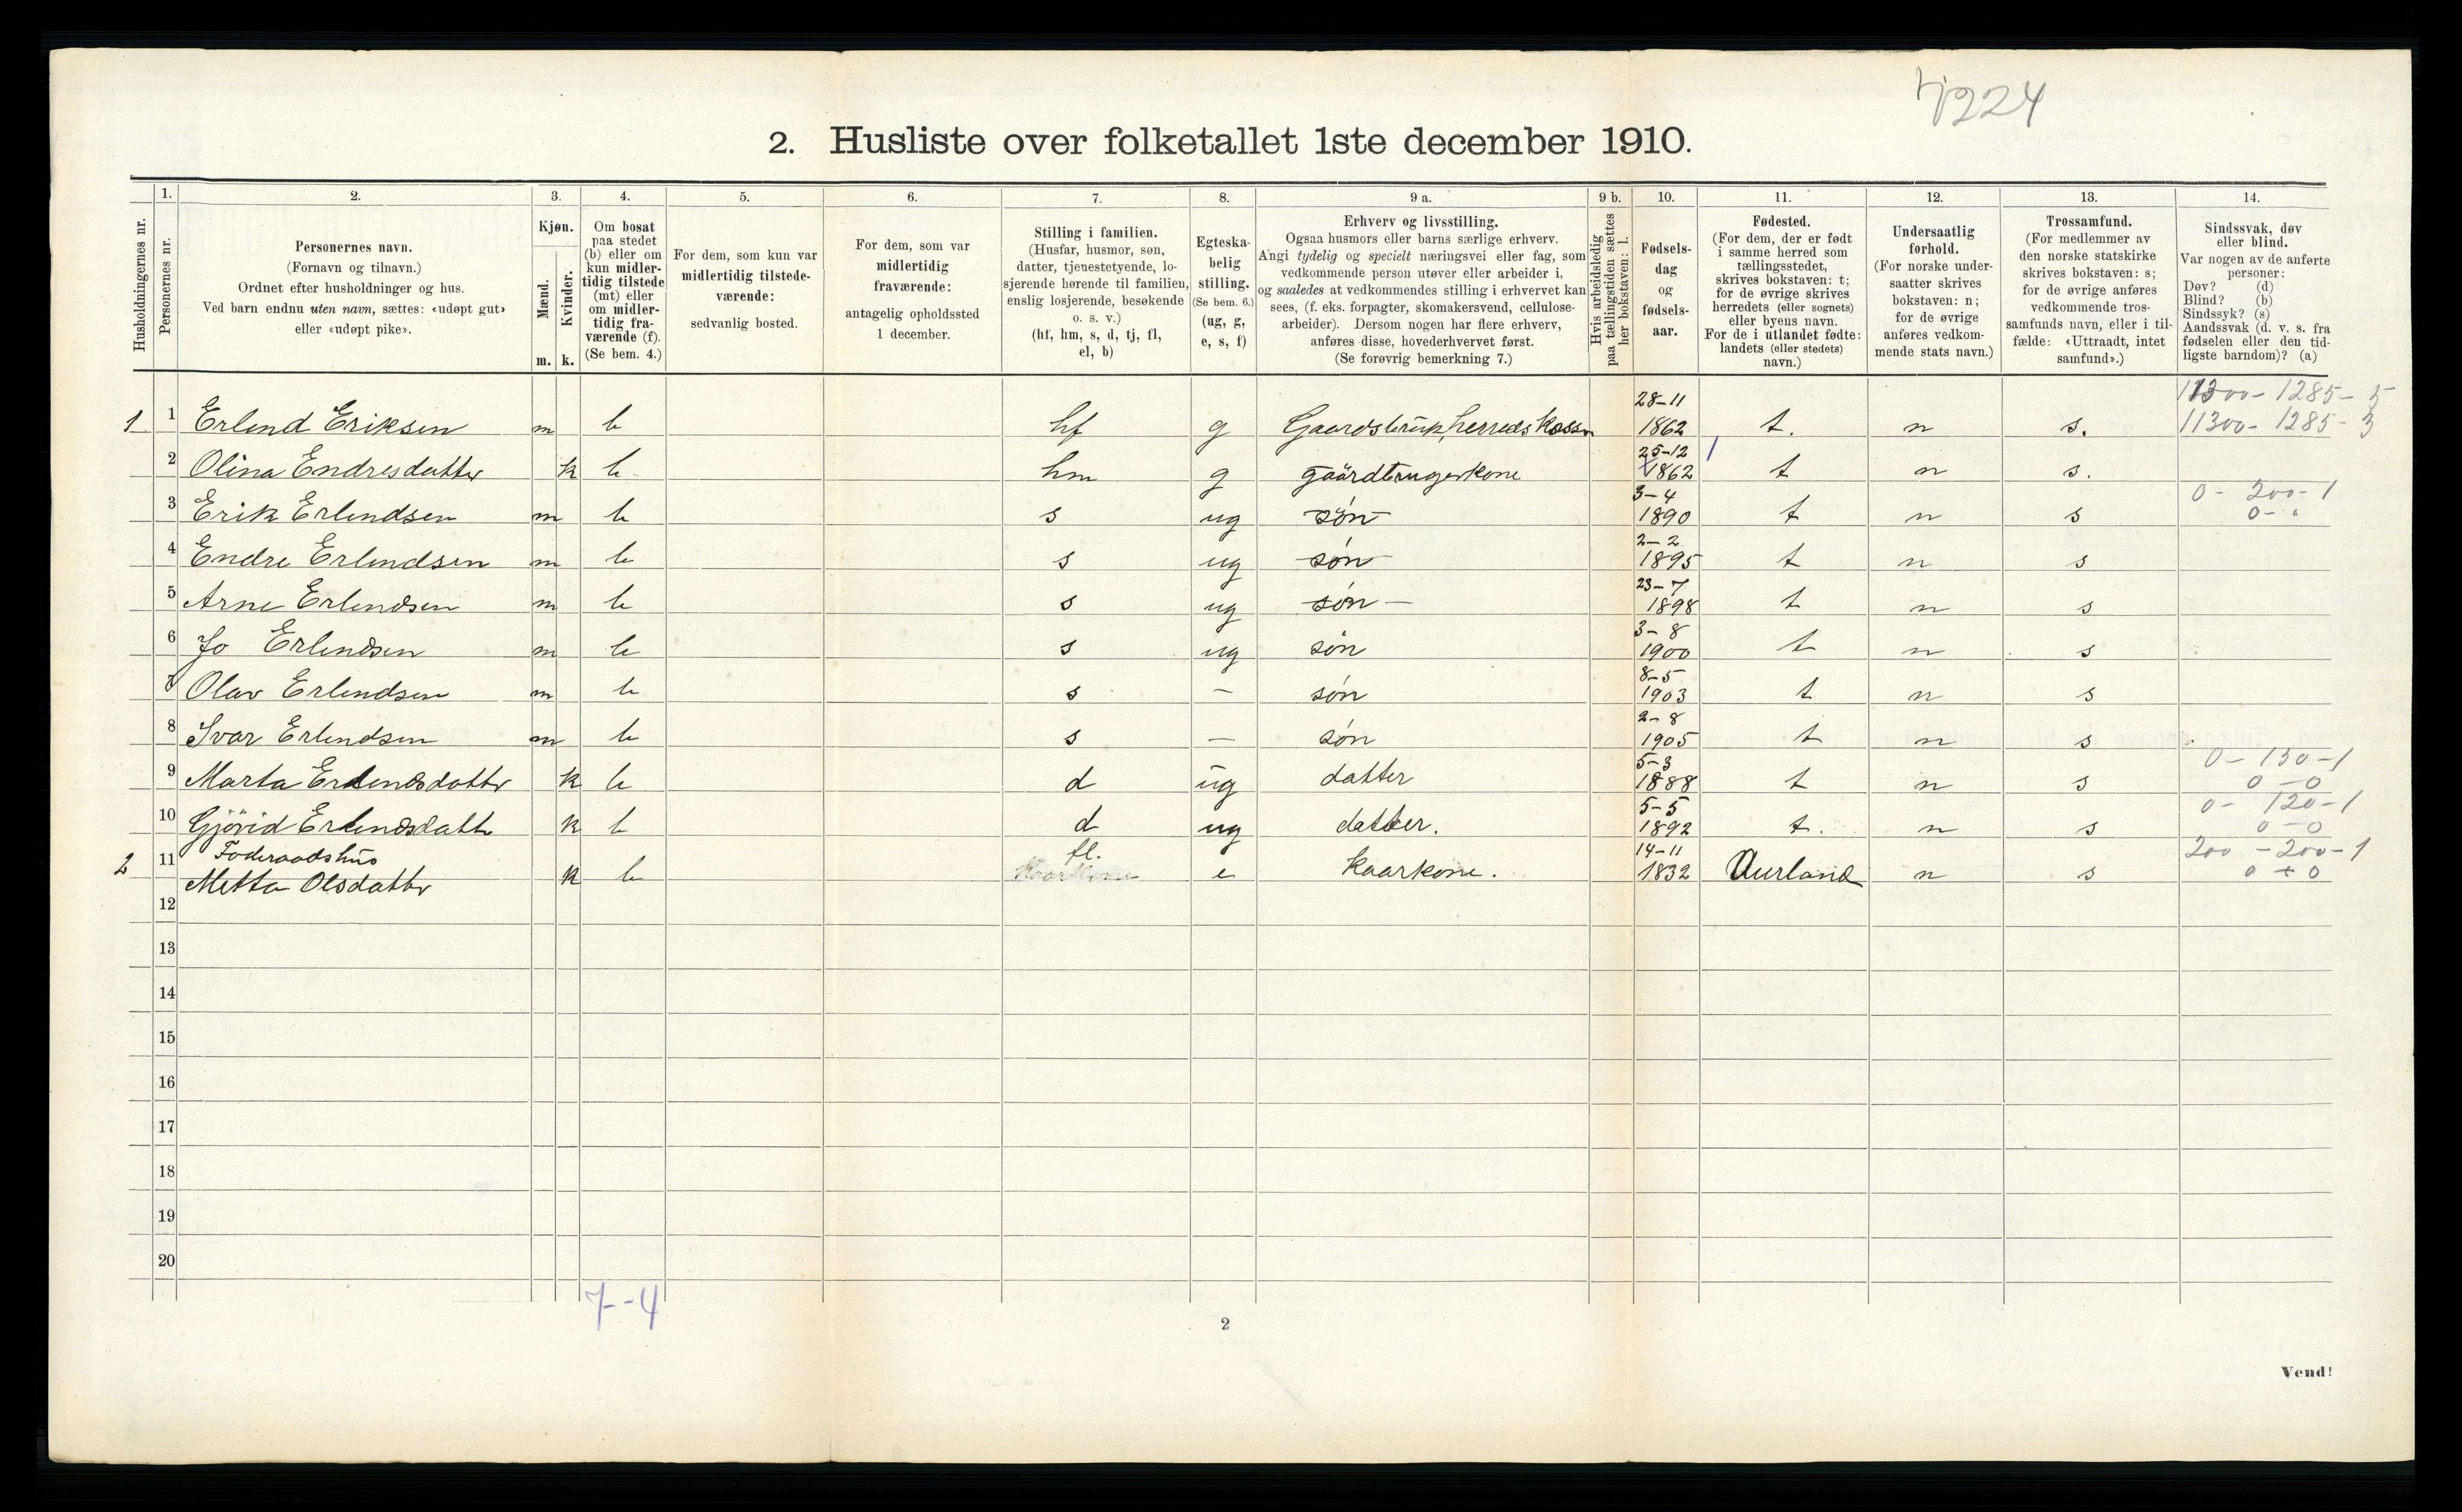 7224
2. Husliste over folketallet 1ste december 1910.
Husholdningernes nr.
1.
Personernes nr.
2.
Personernes navn.
(Fornavn og tilnavn.)
Ordnet efter husholdninger og hus.
Ved barn endnu uten navn, sættes: «udøpt gut»
eller «udøpt pike».
3.
Kjøn.
Mænd.
Kvinder.
m. k.
4.
Om bosat
paa stedet
(b) eller om
kun midler-
tidig tilstede
(mt) eller
om midler-
tidig fra-
værende (f).
(Se bem. 4.)
5.
For dem, som kun var
midlertidig tilstede-
værende:
sedvanlig bosted.
6.
For dem, som var
midlertidig
fraværende:
antagelig opholdssted
1 december.
7.
Stilling i familien.
(Husfar, husmor, søn,
datter, tjenestetyende, lo-
sjerende hørende til familien,
enslig losjerende, besøkende
o. s. v.)
(hf, hm, s, d, tj, fl,
el, b)
8.
Egteska-
belig
stilling.
(Se bem. 6.)
(ug, g,
e, s, f)
9 a.
Erhverv og livsstilling.
Ogsaa husmors eller barns særlige erhverv.
Angi tydelig og specielt næringsvei eller fag, som
vedkommende person utøver eller arbeider i,
og saaledes at vedkommendes stilling i erhvervet kan
sees, (f. eks. forpagter, skomakersvend, cellulose-
arbeider). Dersom nogen har flere erhverv,
anføres disse, hovederhvervet først.
(Se forøvrig bemerkning 7.)
9 b.
Hvis arbeidsledig
paa tællingstiden sættes
her bokstaven: l.
10.
Fødsels-
dag
og
fødsels-
aar.
11.
Fødested.
(For dem, der er født
i samme herred som
tællingsstedet,
skrives bokstaven: t;
for de øvrige skrives
herredets (eller sognets)
eller byens navn.
For de i utlandet fødte:
landets (eller stedets)
navn.)
12.
Undersaatlig
forhold.
(For norske under-
saatter skrives
bokstaven: n;
for de øvrige
anføres vedkom-
mende stats navn.)
13.
Trossamfund.
(For medlemmer av
den norske statskirke
skrives bokstaven: s;
for de øvrige anføres
vedkommende tros-
samfunds navn, eller i til-
fælde: «Uttraadt, intet
samfund».)
14.
Sindssvak, døv
eller blind.
Var nogen av de anførte
personer:
Døv? (d)
Blind? (b)
Sindssyk? (s)
Aandssvak (d. v. s. fra
fødselen eller den tid-
ligste barndom)? (a)
11300 - 1285 - 5
1 1 Erlend Eriksen m b hf g Gaardsbruk, herredskasse 28-11 1862 t. n s. 11300 - 1285 - 3
2 Olina Endresdatter k b hm g gaardbrugerkone 25-12 1862 t n s.
3 Erik Erlendsen m b s ug søn 3-4 1890 t n s 0 - 200 - 1
4 Endre Erlendsen m b s ug søn 2-2 1895 t n s
5 Arne Erlendsen m b s ug søn 23-7 1898 t n s
6 Jo Erlendsen m b s ug søn 3-8 1900 t n s
7 Olav Erlendsen m b s - søn 8-5 1903 t n s
8 Ivar Erlendsen m b s - søn 2-8 1905 t n s
9 Marta Erlendsdatter k b d ug datter 5-3 1888 t n s 0 - 130 - 1 0 - 0
10 Gjörid Erlendsdatter k b d ug datter. 5-5 1892 t. n s 0 - 120 - 1 0 - 0
2 11 Foderaadshus
Metta Olsdatter k b fl. e kaarkone. 14-11 1832 Aurland n s 200 - 200 - 1 0 + 0
12
13
14
15
16
17
18
19
20
7 - 4
2
Vend!